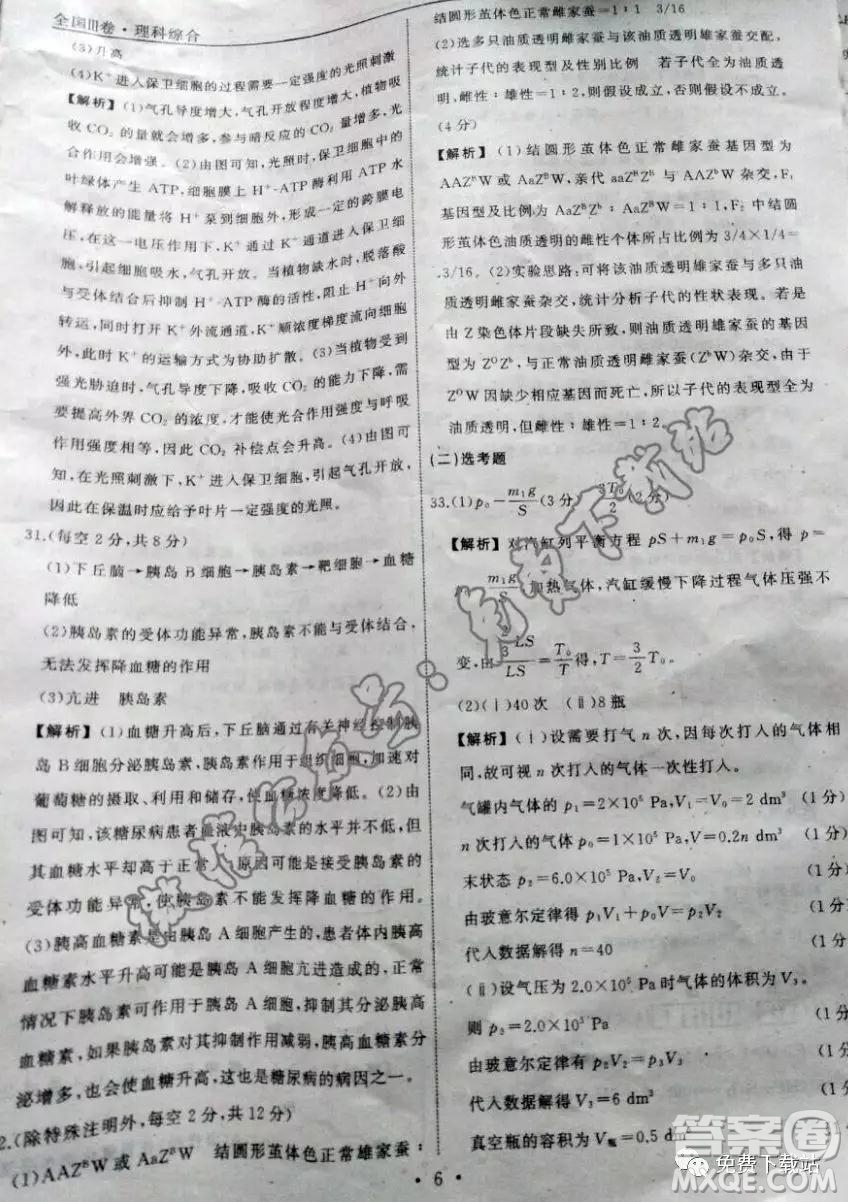 全国Ⅲ卷·理科综合
(3)升高
(4)K⁺进入保卫细胞的过程需要一定强度的光照刺激
【解析】(1)气孔导度增大,气孔开放程度增大,植物吸
收CO₂的量就会增多,参与暗反应的CO₂量增多,光
合作用会增强。(2)由图可知,光照时,保卫细胞中的
叶绿体产生ATP,细胞膜上H⁺-ATP酶利用ATP水
解释放的能量将H⁺泵到细胞外,形成一定的跨膜电
压,在这一电压作用下,K⁺通过K⁺通道进入保卫细
胞,引起细胞吸水,气孔开放。当植物缺水时,脱落酸
与受体结合后抑制H⁺-ATP酶的活性,阻止H⁺向外
转运,同时打开K⁺外流通道,K⁺顺浓度梯度流向细胞
外,此时K⁺的运输方式为协助扩散。(3)当植物受到
强光胁迫时,气孔导度下降,吸收CO₂的能力下降,需
要提高外界CO₂的浓度,才能使光合作用强度与呼吸
作用强度相等,因此CO₂补偿点会升高。(4)由图可
知,在光照刺激下,K⁺进入保卫细胞,引起气孔开放,
因此在保温时应给予叶片一定强度的光照。
31.(每空2分,共8分)
(1)下丘脑→胰岛B细胞→胰岛素→靶细胞→血糖
降低
(2)胰岛素的受体功能异常,胰岛素不能与受体结合,
无法发挥降血糖的作用
(3)亢进 胰岛素
【解析】(1)血糖升高后,下丘脑通过有关神经控制胰
岛B细胞分泌胰岛素,胰岛素作用于组织细胞,加速对
葡萄糖的摄取、利用和储存,使血糖浓度降低。(2)由
图可知,该糖尿病患者血液中胰岛素的水平并不低,但
其血糖水平却高于正常人,原因可能是接受胰岛素的
受体功能异常,使胰岛素不能发挥降血糖的作用。
(3)胰高血糖素是由胰岛A细胞产生的,患者体内胰高
血糖素水平升高可能是胰岛A细胞亢进造成的,正常
情况下胰岛素可作用于胰岛A细胞,抑制其分泌胰高
血糖素,如果胰岛素对其抑制作用减弱,胰高血糖素分
泌增多,也会使血糖升高,这也是糖尿病的病因之一。
2.(除特殊注明外,每空2分,共12分)
(1)AAZᴮW或AaZᴮW 结圆形茧体色正常雄家蚕:
结圆形茧体色正常雌家蚕=1:1 3/16
(2)选多只油质透明雌家蚕与该油质透明雄家蚕交配,
统计子代的表现型及性别比例 若子代全为油质透
明,雌性:雄性=1:2,则假设成立,否则假设不成立。
(4分)
【解析】(1)结圆形茧体色正常雌家蚕基因型为
AAZᴮW或AaZᴮW,亲代aaZᴮZᵇ与AAZᴮW杂交,F₁
基因型及比例为AaZᴮZᵇ:AaZᴮW=1:1,F₂中结圆
形茧体色油质透明的雌性个体所占比例为3/4×1/4=
3/16。(2)实验思路:可将该油质透明雄家蚕与多只油
质透明雌家蚕杂交,统计分析子代的性状表现。若是
由Z染色体片段缺失所致,则油质透明雄家蚕的基因
型为Z⁰Zᵇ,与正常油质透明雌家蚕(ZᵇW)杂交,由于
Z⁰W因缺少相应基因而死亡,所以子代的表现型全为
油质透明,但雌性:雄性=1:2。
(二)选考题
33.(1)p₀-m₁g/S(3分) 3T₀/2(2分)
【解析】对汽缸列平衡方程pS+m₁g=p₀S,得p=
m₁g/S 加热气体,汽缸缓慢下降过程气体压强不
变,由 (2/3)LS/LS=T₀/T得,T=3/2 T₀。
(2)(ⅰ)40次 (ⅱ)8瓶
【解析】(ⅰ)设需要打气n次,因每次打入的气体相
同,故可视n次打入的气体一次性打入。
气罐内气体的p₁=2×10⁵ Pa,V₁=V₀=2 dm³ (1分)
n次打入的气体p₀=1×10⁵ Pa,V=0.2n dm³ (1分)
末状态p₂=6.0×10⁵ Pa,V₂=V₀ (1分)
由玻意尔定律得p₁V₁+p₀V=p₂V₀ (1分
代入数据解得n=40 (1分
(ⅱ)设气压为2.0×10⁵ Pa时气体的体积为V₃。
则p₃=2.0×10⁵ Pa (1分
由玻意尔定律有p₂V₂=p₃V₃ (1分
代入数据解得V₃=6 dm³ (1分
真空瓶的容积为V瓶=0.5 dm³
· 6 ·
答案圈
免费下载站